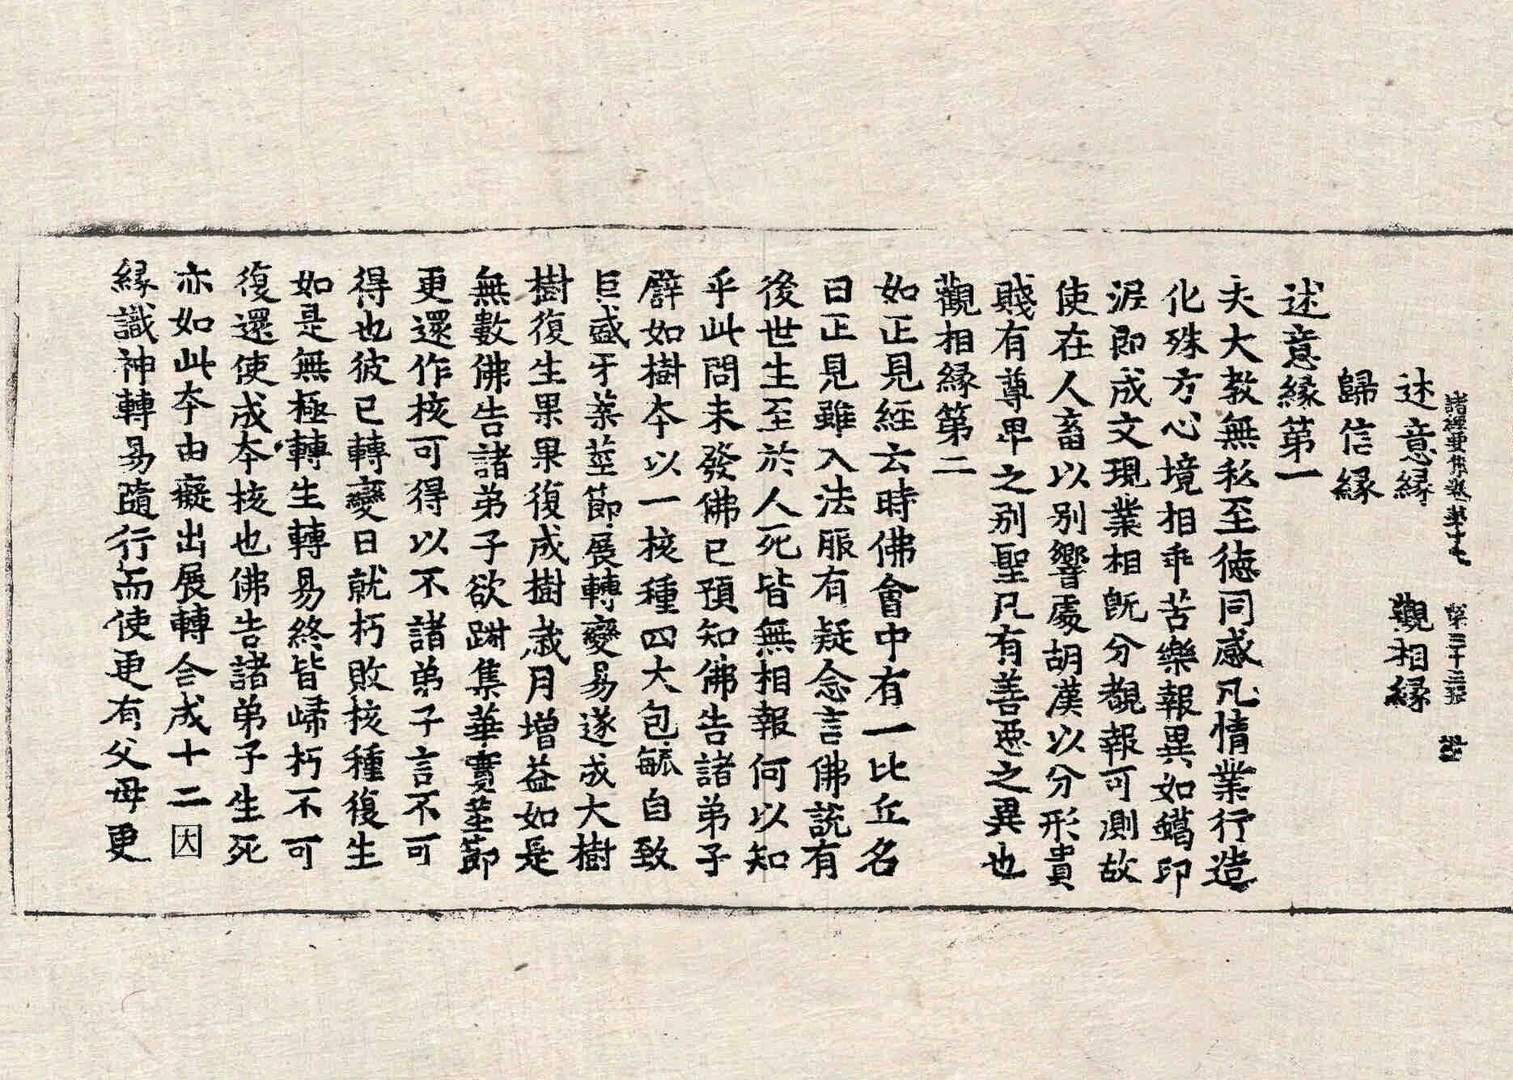 諸經要集卷第十七 第三十二張 群
述意緣 觀相緣
歸信緣
述意緣第一
夫大教無私至德同感凡情業行造
化殊方心境相乖苦樂報異如蠟印
泥即成文現業相旣分覩報可測故
使在人畜以別響處胡漢以分形貴
賤有尊卑之別聖凡有善惡之異也
觀相緣第二
如正見經云時佛會中有一比丘名
曰正見雖入法服有疑念言佛說有
後世生至於人死皆無相報何以知
乎此問未發佛已預知佛告諸弟子
譬如樹本以一核種四大包毓自致
巨盛牙葉莖節展轉變易遂成大樹
樹復生果果復成樹歲月增益如是
無數佛告諸弟子欲踧集華實莖節
更還作核可得以不諸弟子言不可
得也彼已轉變日就朽敗核種復生
如是無極轉生轉易終皆歸朽不可
復還使成本核也佛告諸弟子生死
亦如此本由癡出展轉合成十二因
緣識神轉易隨行而使更有父母更